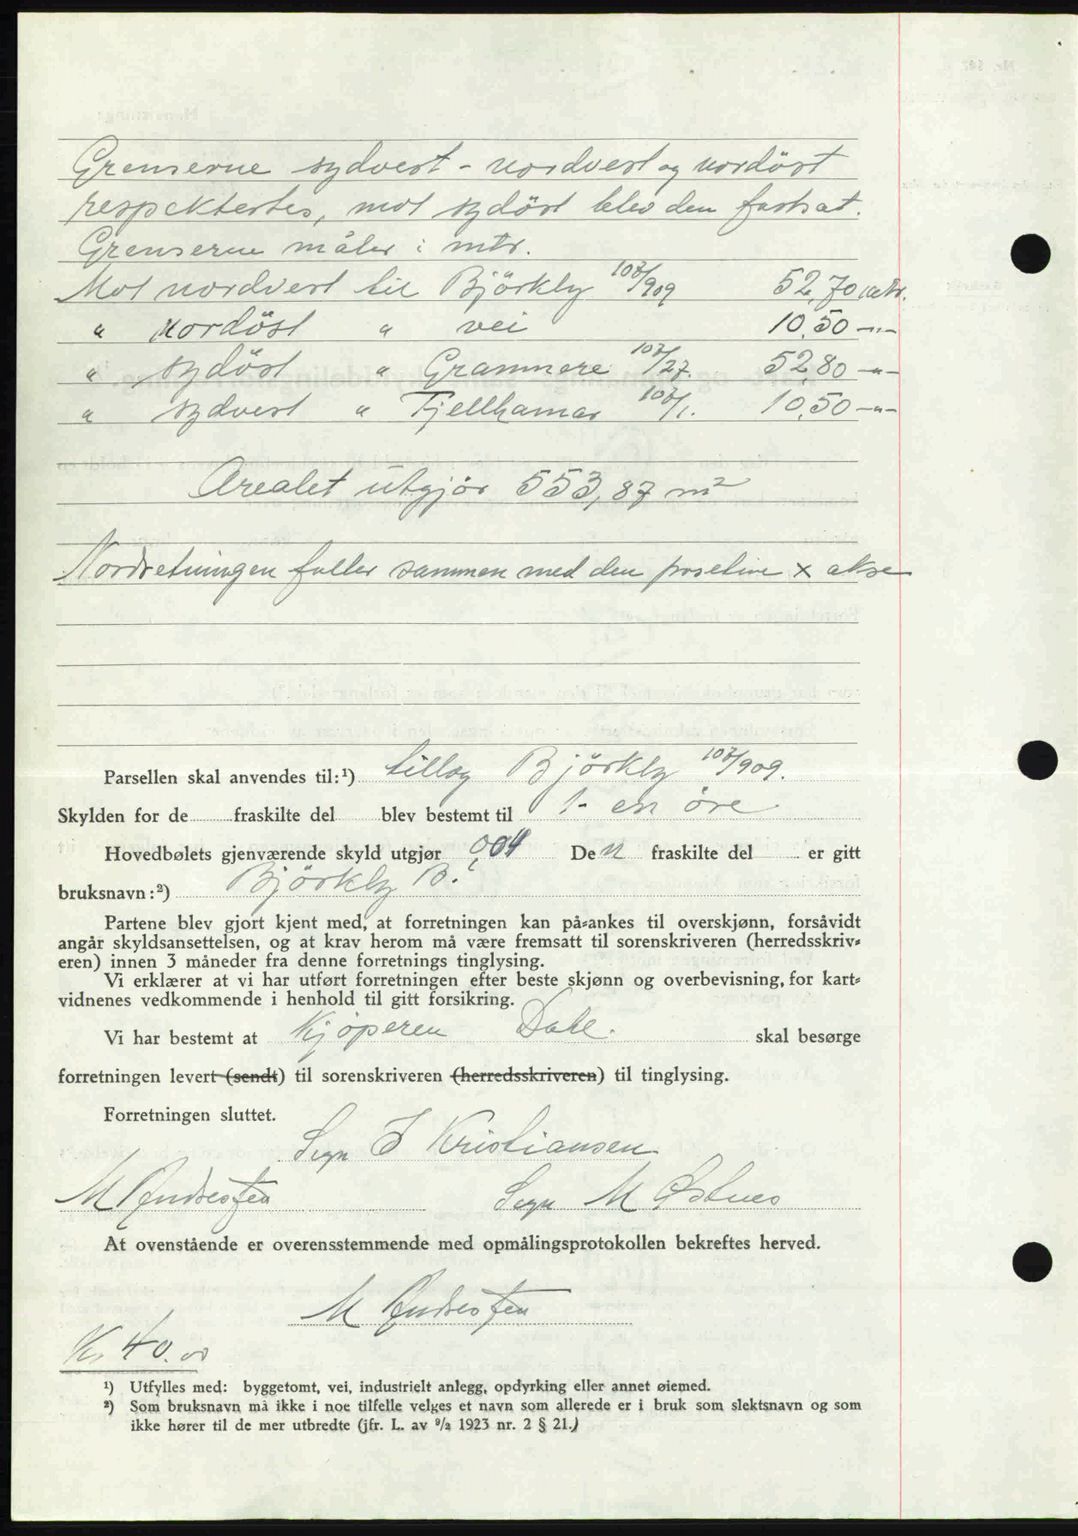 Grenserne sydvest - nordvest og nordöst
respekteertes, mot sydöst blev den fastsat.
Grenserne måler i mtr.
Mot nordvest til Björkly 107/909 52,70 mtr.
" nordöst " vei 10,50 -"-
" sydöst " Granmere 107/27. 52,80 -"-
" sydvest " Fjellhamar 107/1. 10,50 -"-
Arealet utgjör 553,87 m²
Nordretningen faller sammen med den posetive x akse
Parsellen skal anvendes til:¹) tillæg Björkly 107/909.
Skylden for de fraskilte del blev bestemt til 1- en öre
Hovedbølets gjenværende skyld utgjør 0,04 Den fraskilte del er gitt
bruksnavn:²) Björkly B.
Partene blev gjort kjent med, at forretningen kan på=ankes til overskjønn, forsåvidt
angår skyldsansettelsen, og at krav herom må være fremsatt til sorenskriveren (herredsskriv=
eren) innen 3 måneder fra denne forretnings tinglysing.
Vi erklærer at vi har utført forretningen efter beste skjønn og overbevisning, for kart=
vidnenes vedkommende i henhold til gitt forsikring.
Vi har bestemt at Kjøperen Dahl. skal besørge
forretningen levert (sendt) til sorenskriveren (herredsskriveren) til tinglysing.
Forretningen sluttet.
Sign J Kristiansen
M Sign M Østnes
At ovenstående er overensstemmende med opmålingsprotokollen bekreftes herved.
M
Kr 40.00
¹) Utfylles med: byggetomt, vei, industrielt anlegg, opdyrking eller annet øiemed.
²) Som bruksnavn må ikke i noe tilfelle velges et navn som allerede er i bruk som slektsnavn og som
ikke hører til de mer utbredte (jfr. L. av 9/2 1923 nr. 2 § 21.)